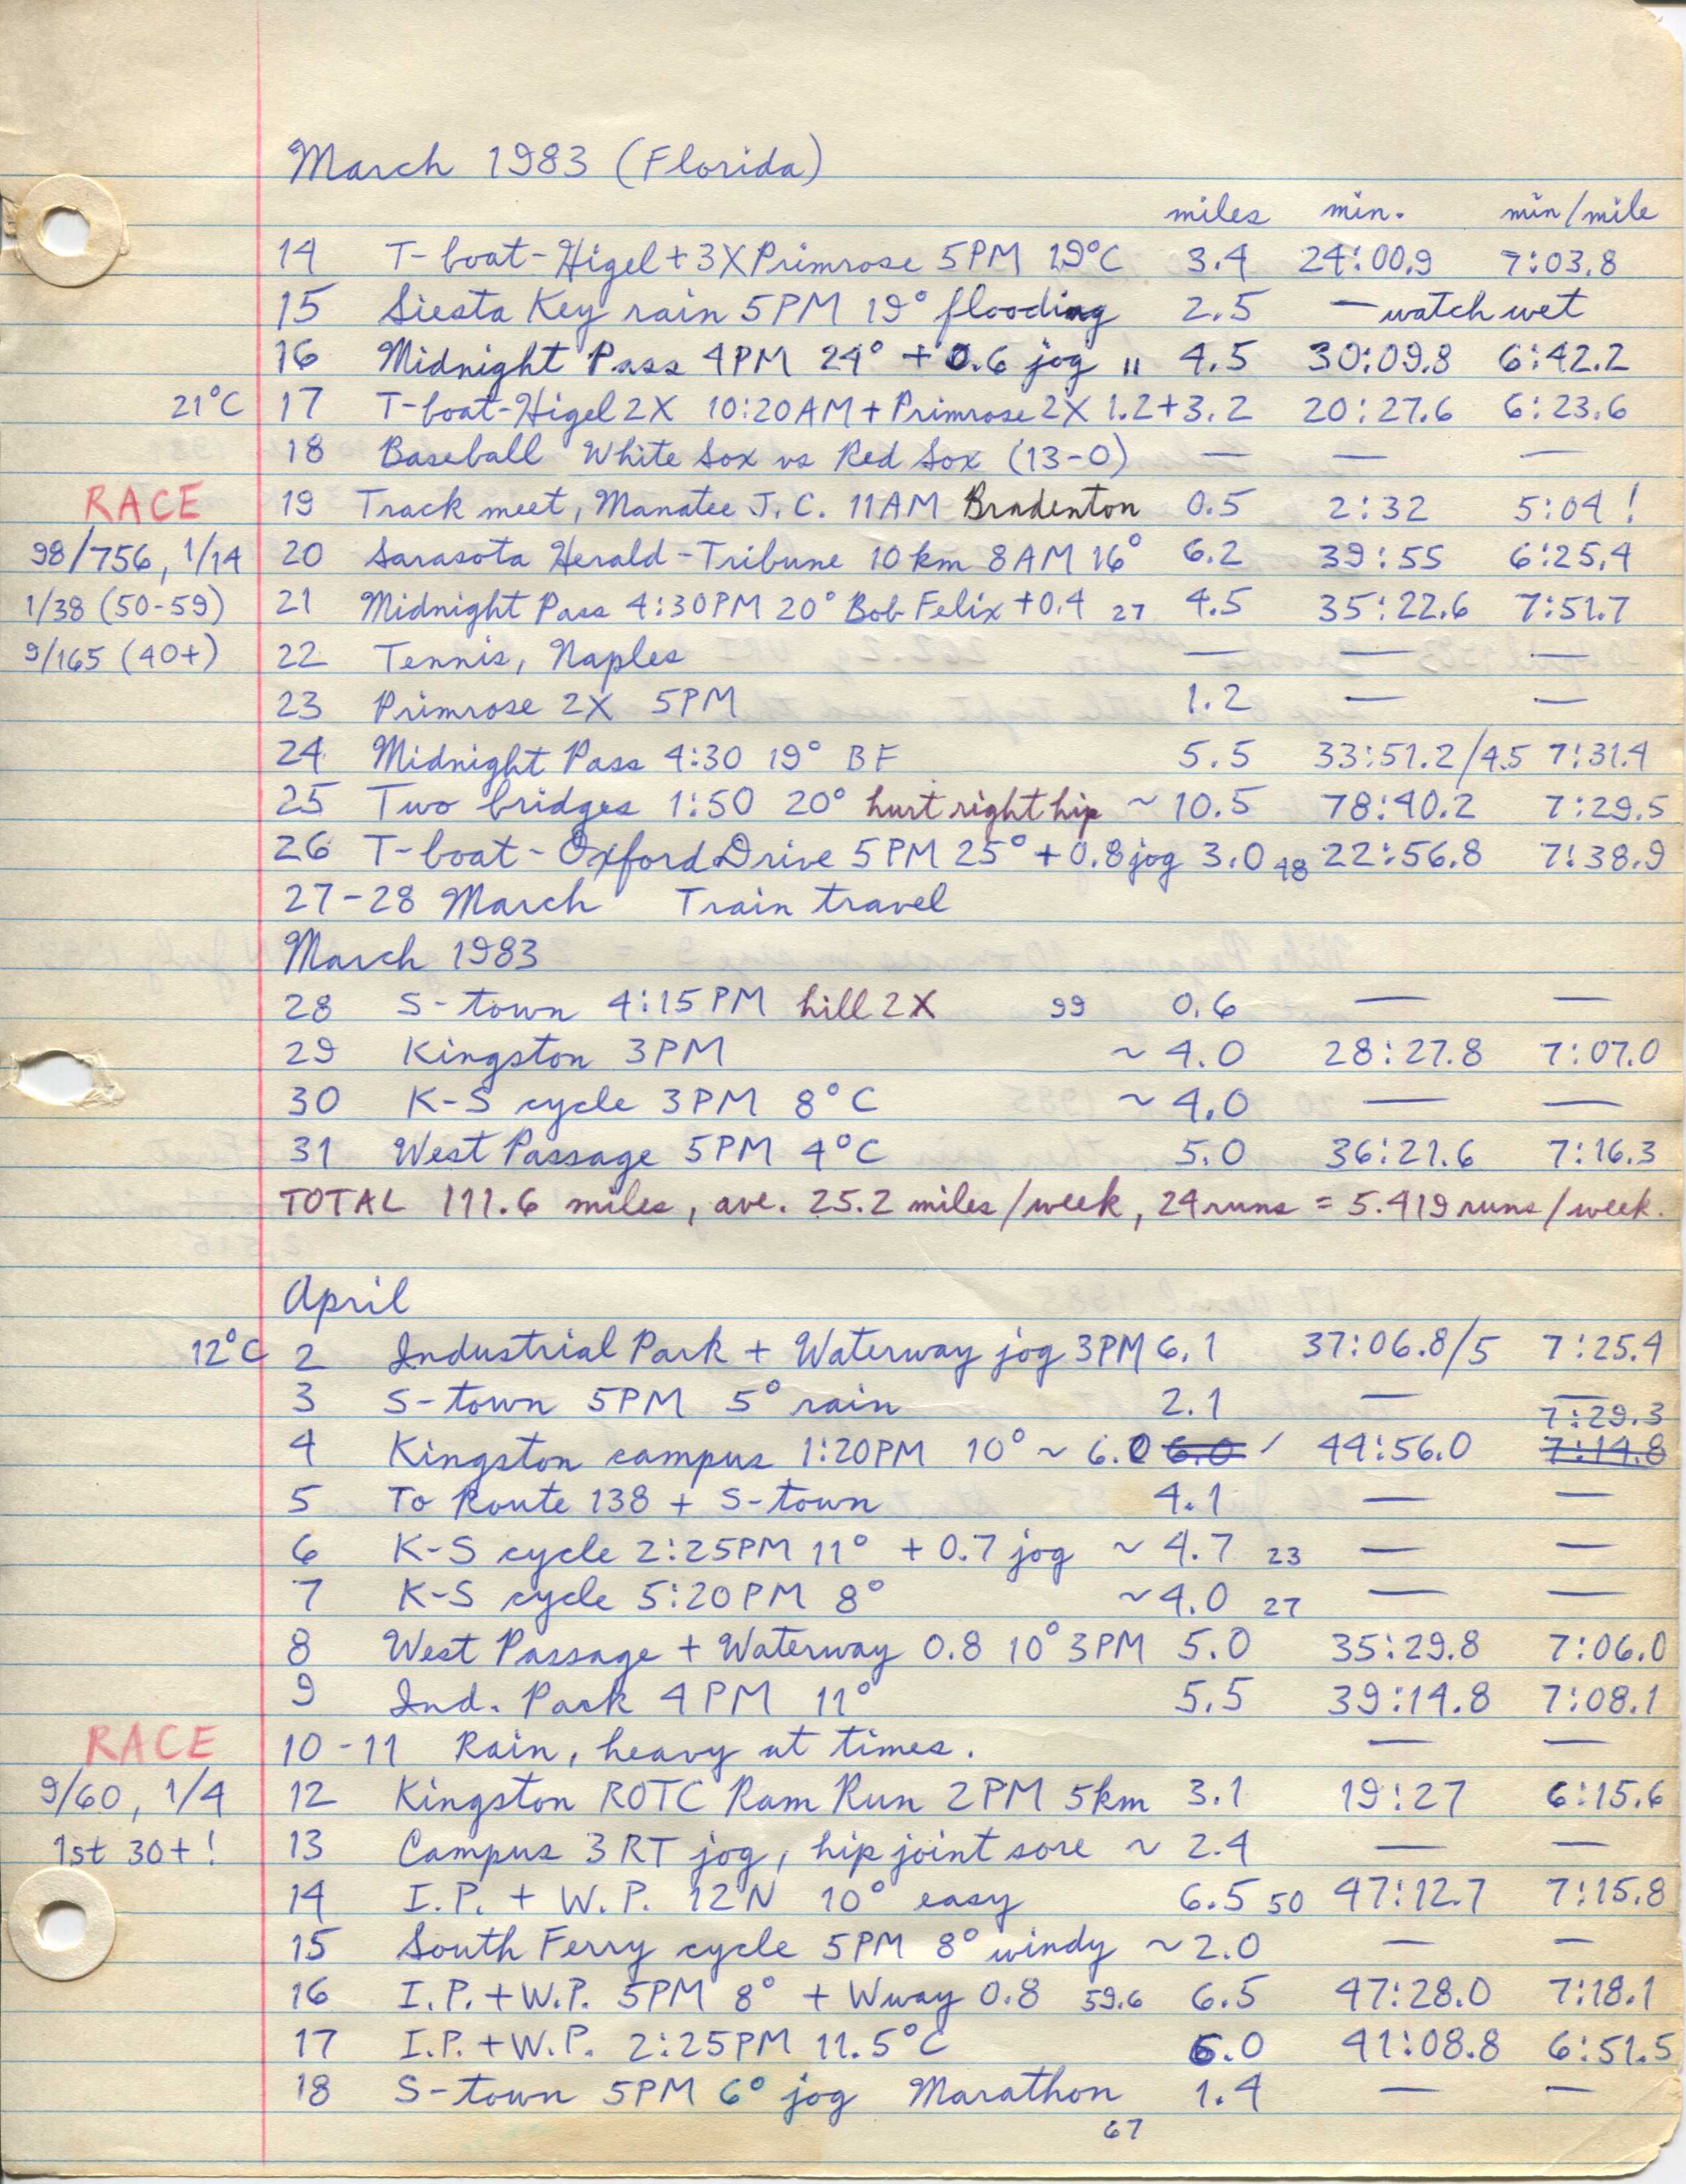 March 1983 (Florida)
miles min. min/mile
14 T-boat-Higel+3XPrimrose 5PM 19°C 3.4 24:00.9 7:03.8
15 Siesta Key rain 5PM 19° flooding 2.5 — watch wet
16 Midnight Pass 4PM 24° + 0.6 jog 11 4.5 30:09.8 6:42.2
21°C 17 T-boat-Higel 2X 10:20AM + Primrose 2X 1.2+3.2 20:27.6 6:23.6
18 Baseball White Sox vs Red Sox (13-0) — — —
RACE 19 Track meet, Manatee J.C. 11AM Bradenton 0.5 2:32 5:04!
98/756, 1/14 20 Sarasota Herald-Tribune 10km 8AM 16° 6.2 39:55 6:25.4
1/38 (50-59) 21 Midnight Pass 4:30PM 20° Bob Felix +0.4 27 4.5 35:22.6 7:51.7
9/165 (40+) 22 Tennis, Naples — — —
23 Primrose 2X 5PM 1.2 — —
24 Midnight Pass 4:30 19° BF 5.5 33:51.2/4.5 7:31.4
25 Two bridges 1:50 20° hurt right hip ~10.5 78:40.2 7:29.5
26 T-boat-Oxford Drive 5PM 25° + 0.8 jog 3.0 48 22:56.8 7:38.9
27-28 March Train travel
March 1983
28 S-town 4:15PM hill 2X 99 0.6 — —
29 Kingston 3PM ~4.0 28:27.8 7:07.0
30 K-S cycle 3PM 8°C ~4.0 — —
31 West Passage 5PM 4°C 5.0 36:21.6 7:16.3
TOTAL 111.6 miles, ave. 25.2 miles/week, 24 runs = 5.419 runs/week.
April
12°C 2 Industrial Park + Waterway jog 3PM 6.1 37:06.8/5 7:25.4
3 S-town 5PM 5° rain 2.1 — —
7:29.3
4 Kingston campus 1:20PM 10° ~ 6.0 6.0 ✓ 44:56.0 7:14.8
5 To Route 138 + S-town 4.1 — —
6 K-S cycle 2:25PM 11° + 0.7 jog ~4.7 23 — —
7 K-S cycle 5:20PM 8° ~4.0 27 — —
8 West Passage + Waterway 0.8 10° 3PM 5.0 35:29.8 7:06.0
9 Ind. Park 4PM 11° 5.5 39:14.8 7:08.1
RACE 10-11 Rain, heavy at times. — —
9/60, 1/4 12 Kingston ROTC Ram Run 2PM 5km 3.1 19:27 6:15.6
1st 30+! 13 Campus 3RT jog, hip joint sore ~2.4 — —
14 I.P. + W.P. 12N 10° easy 6.5 50 47:12.7 7:15.8
15 South Ferry cycle 5PM 8° windy ~2.0 — —
16 I.P. + W.P. 5PM 8° + Wway 0.8 59.6 6.5 47:28.0 7:18.1
17 I.P. + W.P. 2:25PM 11.5°C 6.0 41:08.8 6:51.5
18 S-town 5PM 6° jog Marathon 1.4 — —
67